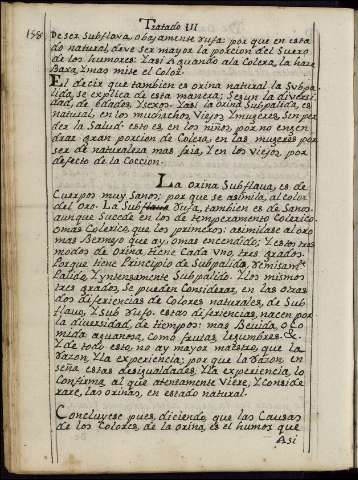 Tratado III
158
De ser Subflava, obajamente rufa: por que en esta
do natural, deve ser mayor la porcion del Suero
de los humores: Yasi lo aguando ala Colera, la have
Bara, Ymas mite el Color.
El decir que tambien es orina natural la Subpa-
lida, se esplica de esta manera; Segun la diversi-
dad, de edades, Ysexos. Yasi la orina Subpalida, es
natural, en los muchachos, Viejos Ymugeres, Sin per
der la Salud: esto es en los niños, por no engen
drar gran porcion de Colera, en las mugeres por
ser de naturaleza mas fria, Y en los Viejos, por
defecto de la Coccion.
La orina Subflaua, es de
Cuerpos muy Sanos; por que se asimila, al color
del oro. La Sub Rufa, tambien es de Sanos
aunque Sucede en los de temperamento Colerico
omas Colerico, que los primeros: asimilase al oro
mas Bermejo que ay, omas encendido; Y estos tres
modos de Orina, tiene Cada Vno, tres grados.
Porque tiene Principio de Subpalida, Yremisamte
Palido, Yyntensamente Subpalido. Y los mismos
tres grados, Se pueden Considerar, en las otras
dos diferiencias de Colores naturales, de Sub
flauo, Y Sub Rufo. estas diferiencias, nacen por
la diversidad, de tiempos: mas Beuida, o Co
mida aquanosa, Como frutas, legumbres. &
Y de todo esto, no ay mayor maestro, que la
Razon, Yla experiencia; por que la Razon en
seña estas desigualdades, Yla experiencia, lo
Confirma, al que atentamente Viere, Yconside
rare, las orinas, en estado natural.
Concluyese pues, diciendo, que las Causas
de los Colores, de la orina, es el humor que
Asi